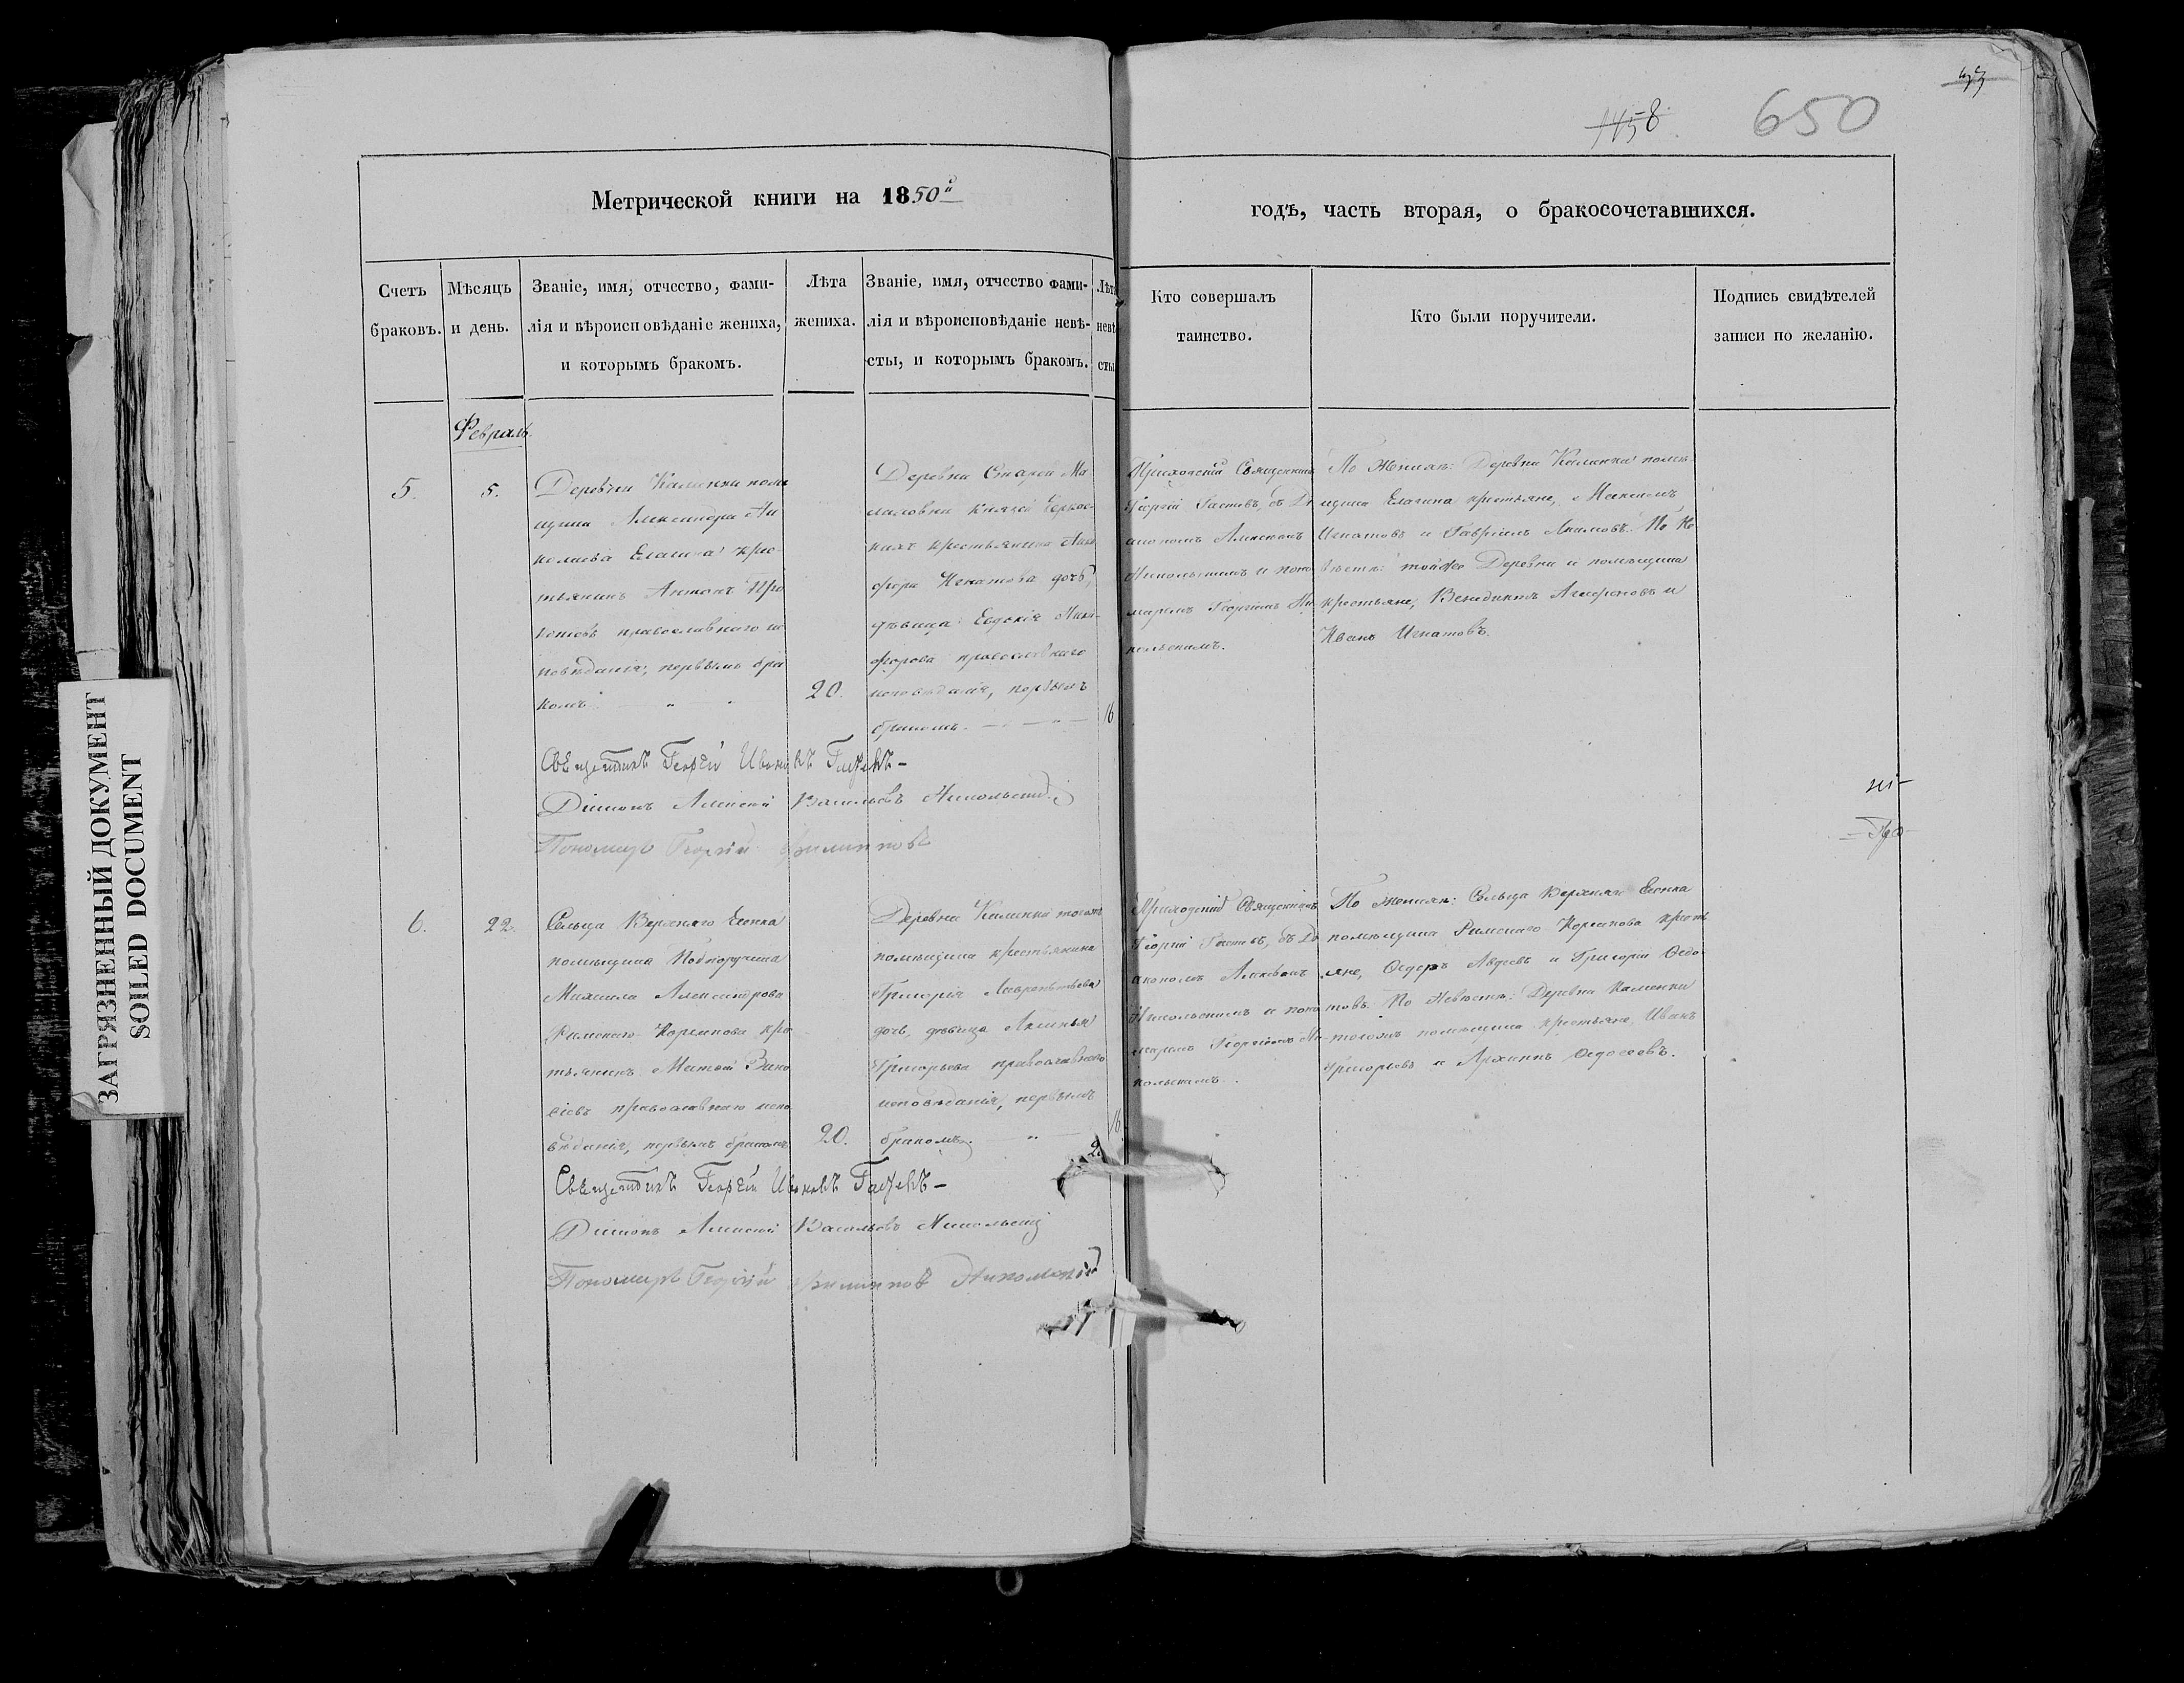 ЗАГРЯЗНЕННЫЙ ДОКУМЕНТ
SOILED DOCUMENT
1458
650
Метрической книги на 1850й
годѣ, часть вторая, о бракосочетавшихся.
Счетъ браковъ.
Мѣсяцъ и день.
Званіе, имя, отчество, фами-
лія и вѣроисповѣданіе жениха,
и которымъ бракомъ.
Лѣта
жениха.
Званіе, имя, отчество фами-
лія и вѣроисповѣданіе невѣ-
сты, и которымъ бракомъ.
Лѣта
невѣ-
сты.
Кто совершалъ
таинство.
Кто были поручители.
Подпись свидѣтелей
записи по желанію.
Февраль.
5.
5.
Деревни Каменки помѣ
щика Александра Ни
колаева Елагина кре-
стьянинъ Антонъ Про
копьевъ православнаго ис
повѣданія, первымъ бра
комъ.
20.
Деревни Старой
князей Черкас-
кихъ крестьянина Ники
фора Игнатова дочь,
дѣвица Евдокія Ники-
форова православнаго
исповѣданія, первымъ
бракомъ.
16
Приходскій Священникъ
Георгій съ Ді
акономъ Алексѣемъ
Никольскимъ и поно
маремъ Георгіемъ Ни
кольскимъ.
По Женихѣ: Деревни Каменки помѣ-
щика Елагина крестьяне, Максимъ
Игнатовъ и Гавріилъ Акимовъ. По Не
вѣстѣ: тойже Деревни и помѣщика
крестьяне, Венедиктъ и
Иванъ Игнатовъ.
Священникъ Георгій Ивановъ
Діаконъ Алексѣй Васильевъ Никольскій
Пономарь Георгій Филипповъ
6.
22.
Сельца Верхняго
помѣщика Подпоручика
Михаила Александрова
Римскаго Корсакова кре
стьянинъ Матвей
православнаго испо
вѣданія, первымъ бракомъ
20.
Деревни Каменки тогожъ
помѣщика крестьянина
Григорія Лаврентьева
дочь, дѣвица Акилина
Григорьева православнаго
исповѣданія, первымъ
бракомъ.
16.
Приходскій Священникъ
Георгій съ Ді
акономъ Алексѣемъ
Никольскимъ и поно
маремъ Георгіемъ Ни-
кольскимъ.
По Женихѣ: Сельца Верхняго
помѣщика Римскаго Корсакова кресть
яне, Ѳедоръ Авдеевъ и Григорій Ѳедо-
товъ. По Невѣстѣ: Деревни Каменки
тогожъ помѣщика крестьяне, Иванъ
Григорьевъ и Архипъ Ѳедосеевъ.
Священникъ Георгій Ивановъ
Діаконъ Алексѣй Васильевъ Никольскій
Пономарь Георгій Филипповъ Никольскій